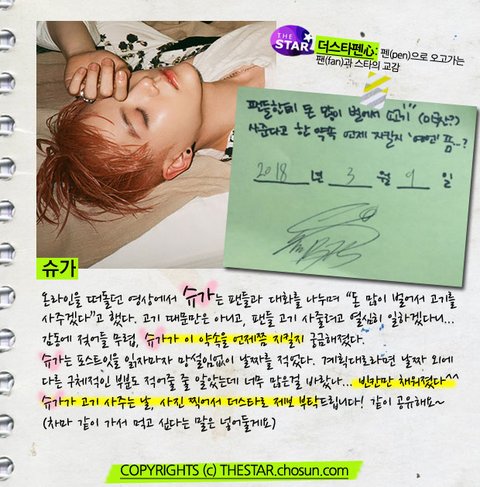 THE
STAR
더스타펜心: 펜(pen)으로 오고가는
팬(fan)과 스타의 교감
팬들한테 돈 많이 벌어서 "고기"
사준다고 한 약속 언제 지킬지
2018 년 3 월 9 일
슈가
온라인을 떠돌던 영상에서 슈가는 팬들과 대화를 나누며 "돈 많이 벌어서 고기를
사주겠다"고 했다. 고기 때문만은 아니고, 팬들 고기 사줄려고 열심히 일하겠다니...
감동에 젖어들 무렵, 슈가가 이 약속을 언제쯤 지킬지 궁금해졌다.
슈가는 포스트잇을 읽자마자 망설임없이 날짜를 적었다. 계획대로라면 날짜 외에
다른 구체적인 부분도 적어줄 줄 알았는데 너무 많은걸 바랐나... 빈칸만 채워졌다^^
슈가가 고기 사주는 날, 사진 찍어서 더스타로 제보 부탁드립니다! 같이 공유해요~
(차마 같이 가서 먹고 싶다는 말은 넣어둘게요)
COPYRIGHTS (c) THESTAR.chosun.com